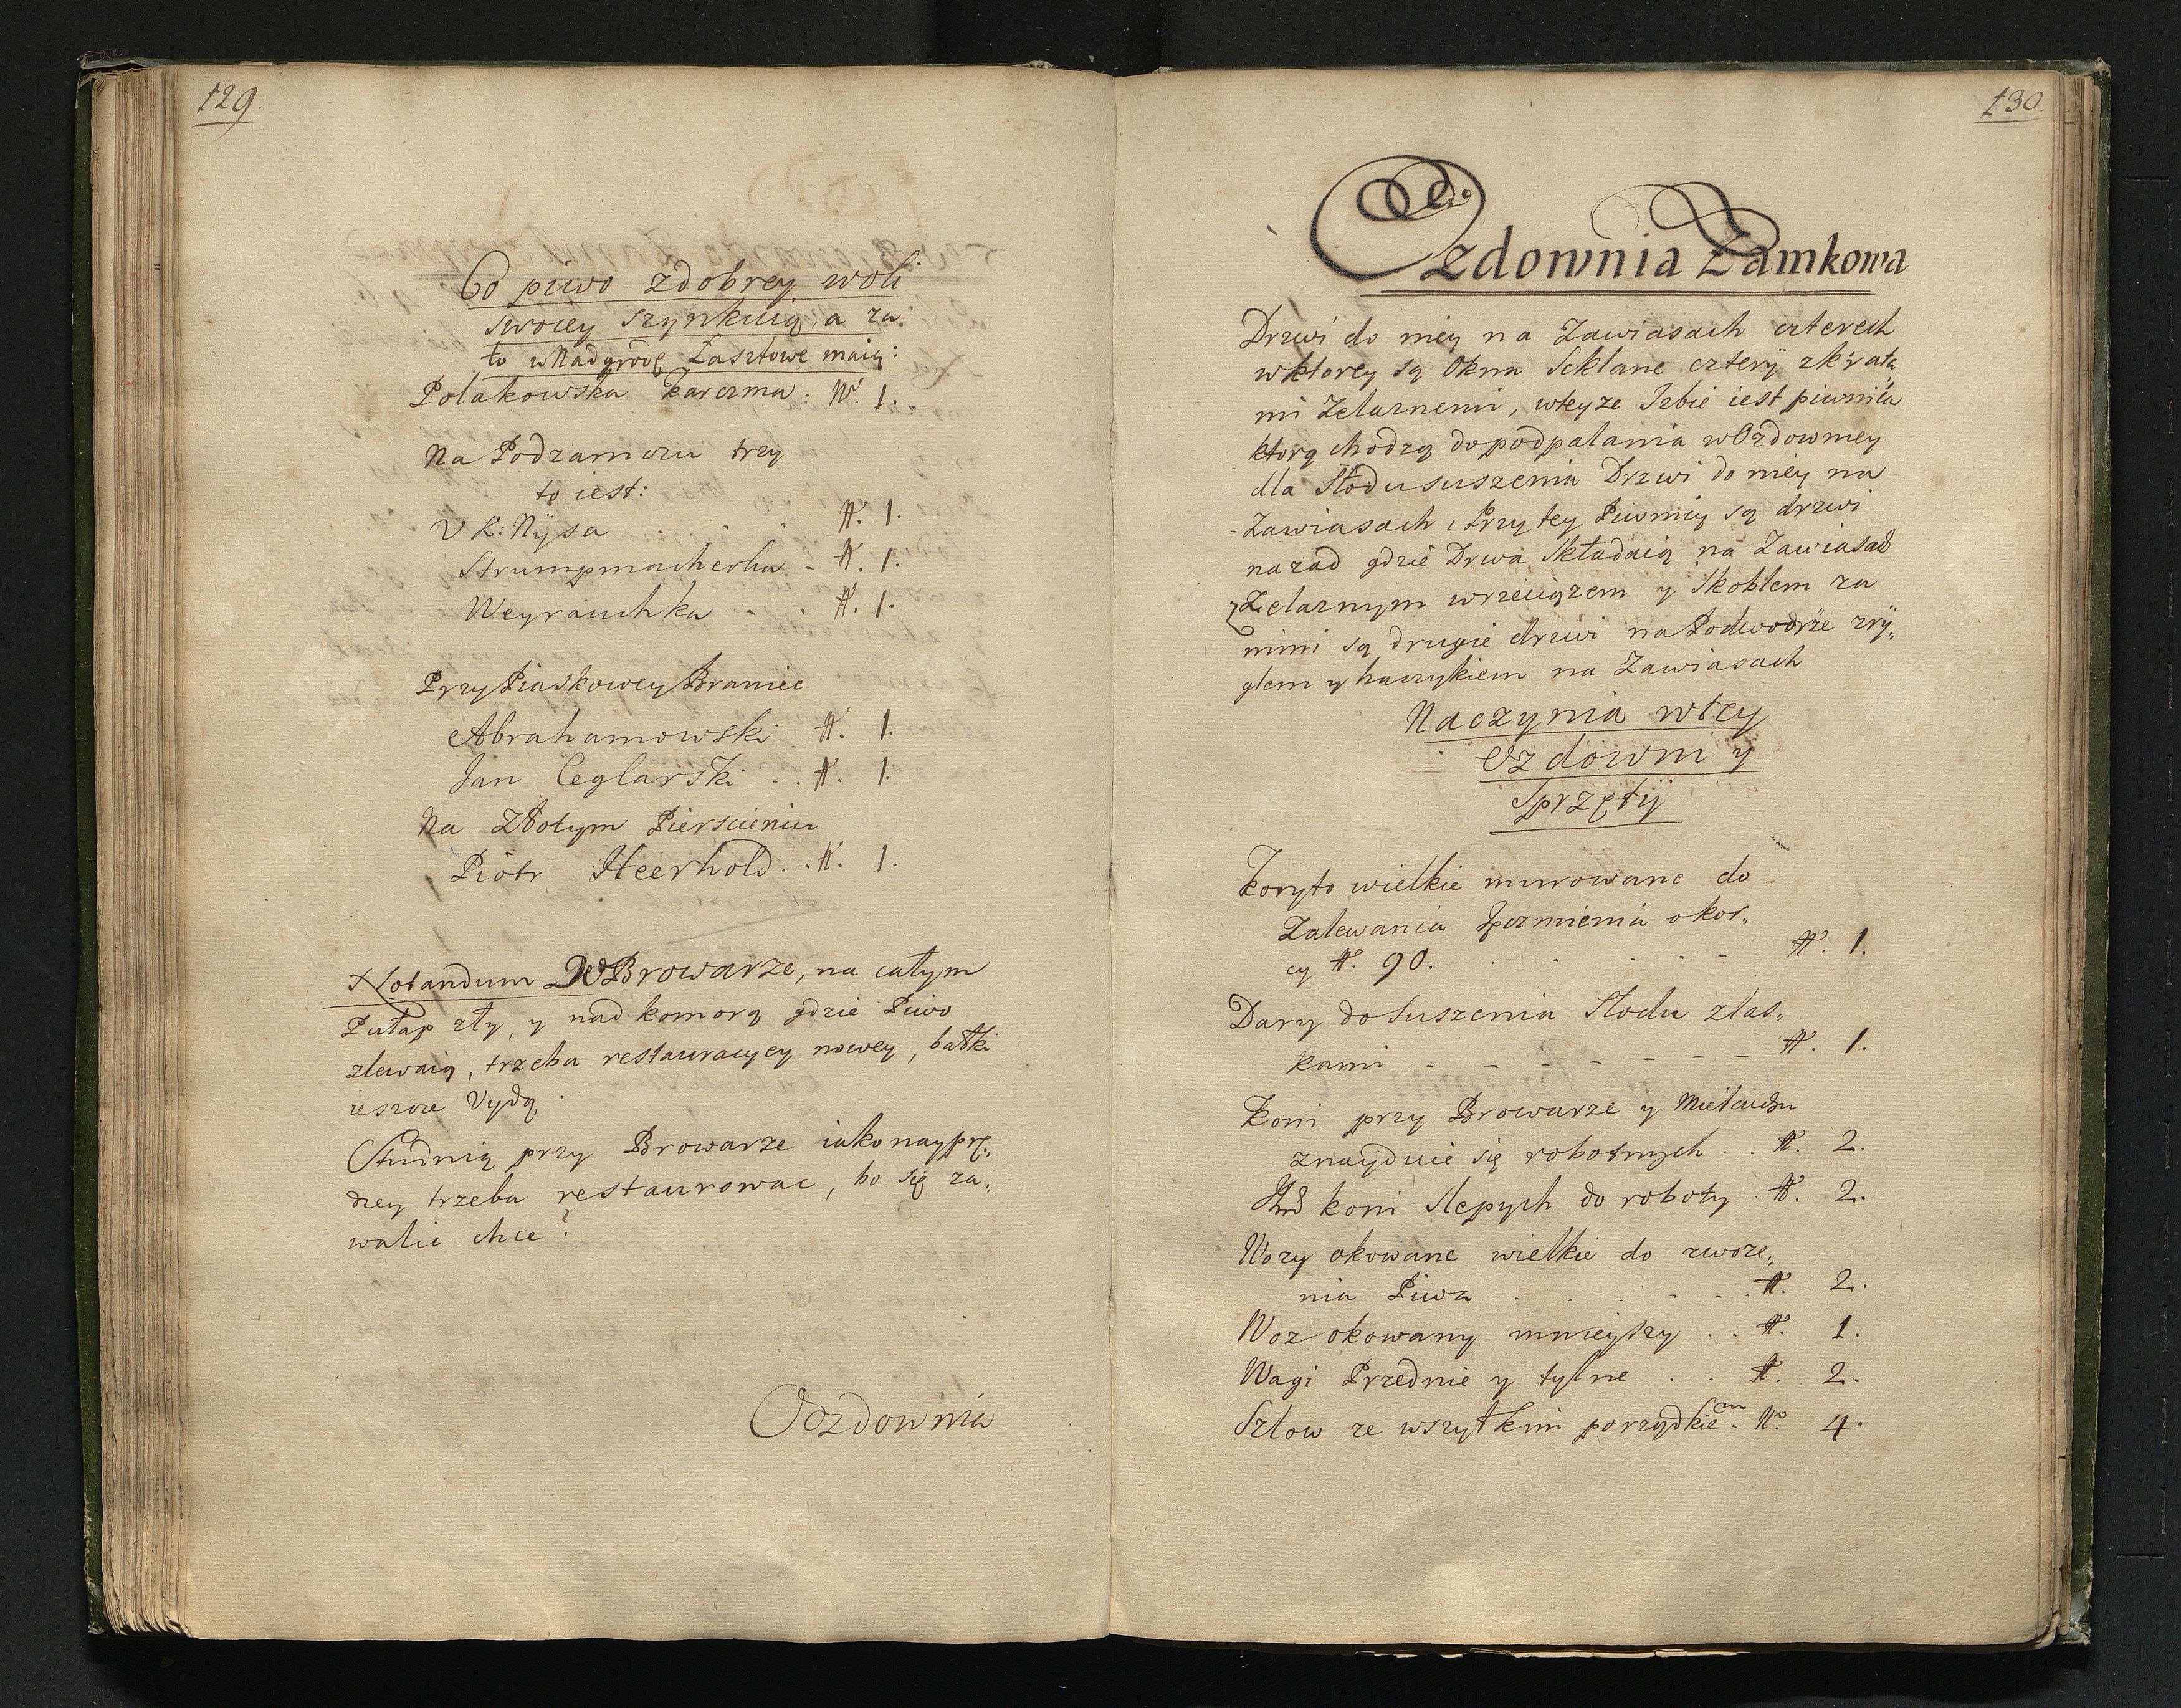 129.
Co piwo zdobrey woli
swoiey szynkuią, a za
to wNadgrodę Łasztowe maią:
Polakowska Karczma. N. 1.
Na Podzamczu trzy
to iest:
V K: Nÿsa . . N. 1.
Strumpmacherka - N. 1.
Weyrauchka . . N. 1.
Przy Piaskowey Bramie
Abrahamowski . N. 1.
Jan Ceglarski . . N. 1.
Na Złotym Pierscieniu
Piotr Heerhold . . N. 1.
Notandum W Browarze, na całym
Pułap zły, y nad komorą gdzie Piwo
zlewaią, trzeba restauracyey nowey, balki
ieszcze Vydą.
Studnią przy Browarze iako nayprę„
dzey trzeba restaurowac, bo się za„
walic chce.
Ozdownia
130.
Ozdownia Zamkowa
Drzwi do niey na Zawiasach czterech
wktorey są Okna Sklane czterÿ zkrata„
mi Zelaznemi, wteyze Izbie iest piwnica
ktorą chodzą do podpalania wOzdowniey
dla Słodu suszenia Drzwi do niey na
Zawiasach, Przy tey Piwnicy są drzwi
nazad gdzie Drwa Składaią na Zawiasach
z Zelaznym wrzeciązem y Skoblem za
nimi są drugie drzwi na Podworze zrÿ„
glem y haczykiem na Zawiasach
Naczynia wtey
Ozdowni y
Sprzętÿ
Koryto wielkie murowane do
Zalewania Jęczmienia o kor„
cy N. 90. . . . . . N. 1.
Dary do Suszenia Słodu zlas„
kami - - - - - - - N. 1.
Koni przy Browarze y Mielcuchu
znayduie się robotnych . . N. 2.
Itd koni Slepych do roboty . N. 2.
Wozy okowane wielkie do zwoze„
nia Piwa . . . . . . N. 2.
Woz okowany mnieyszy . . N. 1.
Wagi Przednie y tylne . . N. 2.
Szlow ze wszytkim porządkiem. No 4.